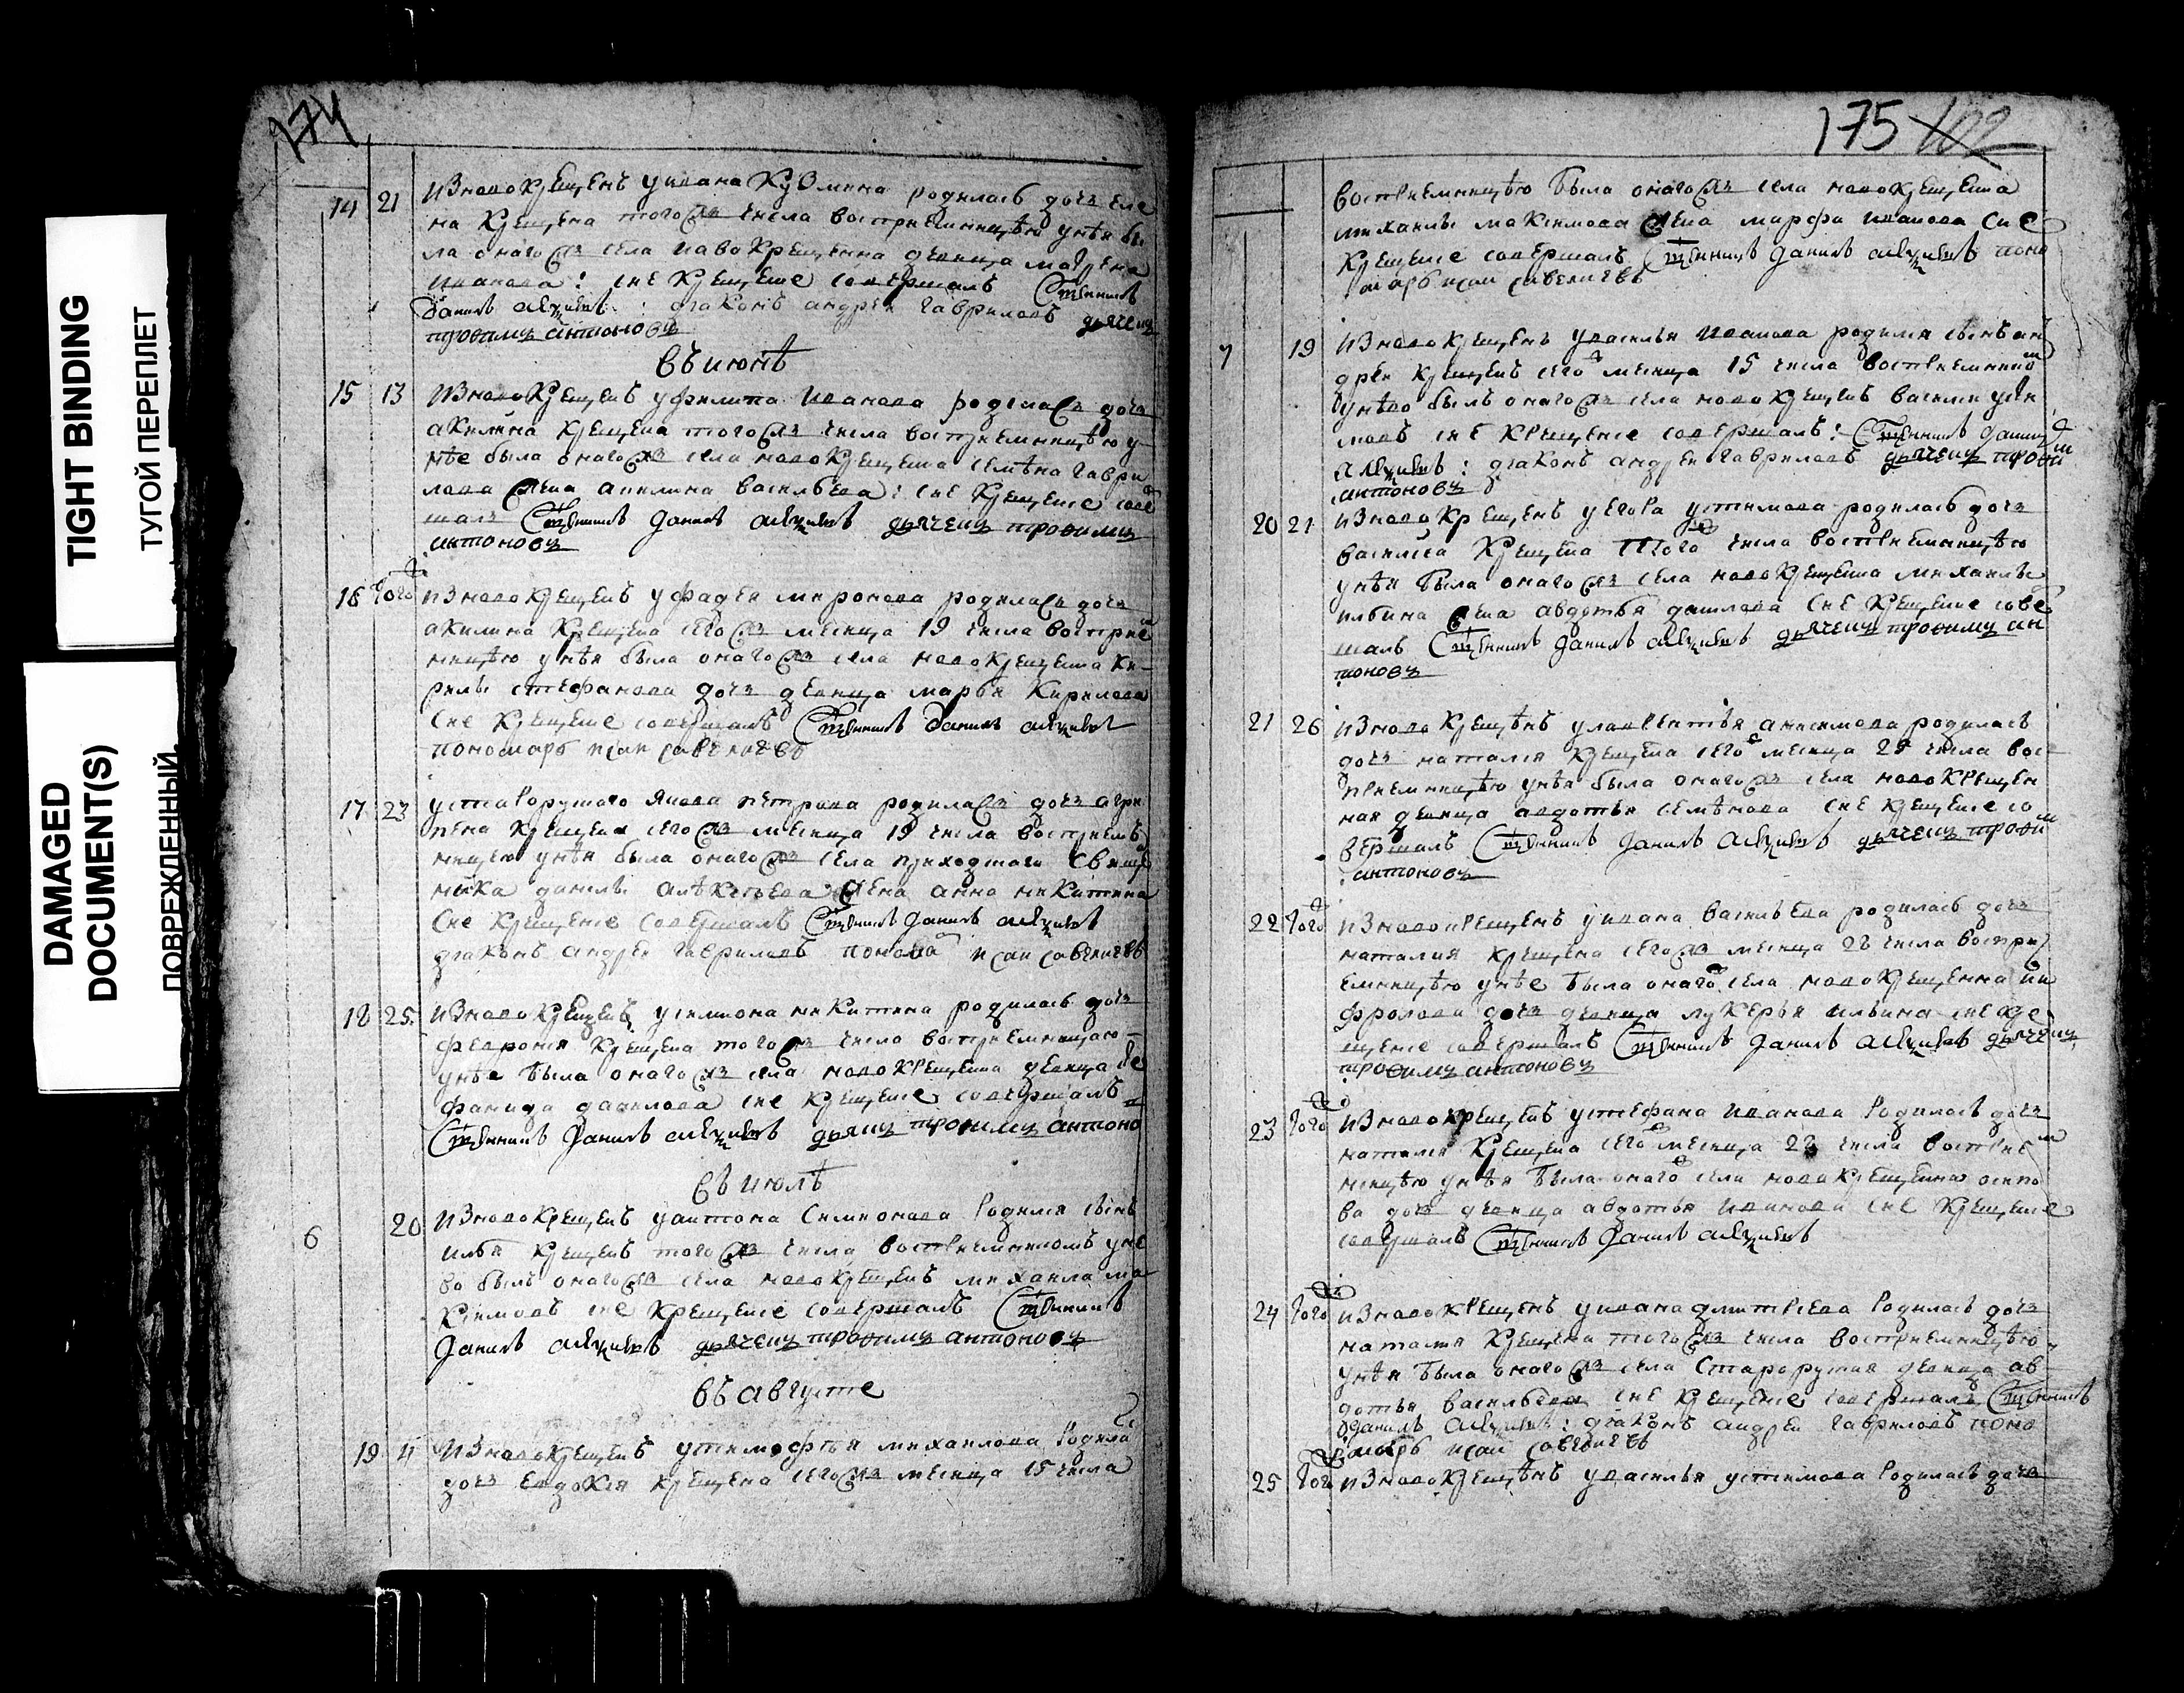 TIGHT BINDING
ТУГОЙ ПЕРЕПЛЕТ
DAMAGED
DOCUMENT(S)
ПОВРЕЖДЕННЫЙ
174
14 21 Изновокрещенъ уивана Кузмина родилась дочь еле
на крещена того ж числа восприемницѣю унѣя бы
ла оного ж села новокрещенна девица матрена
иванова: сие крещение совершалъ Священникъ
Данилъ Алексеевъ: диаконъ андрей гавриловъ дьячекъ
трофимъ антоновъ
въ июнѣ
15 13 Изновокрещенъ уфилипа иванова родилась дочь
акилина крещена того ж числа восприемницѣю у
нѣе была оного ж села новокрещена семѣна гаври
лова жена акилина васильева: сие крещение сове
шалъ Священникъ Данилъ Алексеевъ дьячекъ трофимъ
антоновъ
16 того изновокрещенъ уфадея миронова родилась дочь
акилина крещена сего ж месяца 19 числа восприе
мницѣю унѣя была оного ж села новокрещена ки
рилы стефанова дочь девица марья Кирилова
сие крещение совершалъ Священникъ Данилъ Алексеевъ
пономарь исаи савеличевъ
17 23 устароруского якова петрова родилась дочь агри
пена крещена сего ж месяца 19 числа восприем
ницею унѣя была оного ж села приходшаго свяще
ника данилы алѣксеева жена анна никитина
сие крещение совершалъ Священникъ Данилъ Алексеевъ
диаконъ андреи гавриловъ понома исаи савеличевъ
18 25 Изновокрещенъ усимиона никитина родилась дочь
феврония крещена того ж число восприемницаю
унѣе была оного ж села новокрещена девица
давилова сие крещение совершалъ
Священникъ Данилъ Алексеевъ дьячекъ трофимъ антоно
въ июлѣ
6 20 Изновокрещенъ уантона Симионова родился сынъ
илья крещенъ того ж числа восприемникомъ уне
во былъ оного ж села новокрещенъ михаила ма
ксимовъ сие крещение совершалъ Священникъ
Данилъ Алексеевъ дьячекъ трофимъ антоновъ
въ августе
19 4 Изновокрещенъ утимофѣя михаилова родила
дочь евдокия крещена сего ж месяца 15 числа
175 102
восприемницѣю была оного ж села новокрещена
михаилы максимова жена марфа иванова сие
крещение совершалъ Священникъ Данилъ Алексеевъ поно
марь исаи савеличевъ
7 19 Изновокрещенъ увасилья иванова родился сынъ ан
дреи крещенъ сего месяца 15 числа восприемнико
унѣво былъ оного ж села новокрещенъ василеи
мовъ сие крещение совершалъ: Священникъ Данилъ
Алексеевъ: диаконъ андреи гавриловъ дьячекъ трофи
антоновъ
20 21 Изновокрещенъ уегора устимова родилась дочь
василиса крещена того числа восприемницѣю
унѣя была оного ж села новокрещена михаилы
ильина жена авдотья данилова сие крещение сове
шалъ Священникъ Данилъ Алексеевъ дьячекъ трофимъ ан
тоновъ
21 26 Изновокрещѣнъ улаврентья анисимова родилась
дочь наталия крещена сего месяца 25 числа вос
приемницѣю унѣя была оного ж села новокрещен
ная девица авдотья семѣнова сие крещение со
вершалъ Священникъ Данилъ Алексеевъ дьячекъ трофи
антоновъ
22 того Изновокрещенъ уивана васильева родилась дочь
наталия крещена сего ж месяца 22 числа воспри
емницѣю унѣе была оного села новокрещенна
фролова дочь девица лукерья ильина сие кре
щение совершалъ Священникъ Данилъ Алексеевъ дьячекъ
трофимъ антоновъ
23 того Изновокрещенъ устефана иванова родилась дочь
наталия крещена сего месяца 22 числа восприе
мницѣю унѣя была оного села новокрещенна
ва дочь девица авдотья иванова сие крещение
совершалъ Священникъ Данилъ Алексеевъ
24 того изновокрещенъ уивана дмитриева родилась дочь
наталия крещена того ж числа восприемницѣю
унѣя была оного ж села Староруская девица ав
дотья васильева сие крещение совершалъ Священникъ
Данилъ Алексеевъ: диаконъ андреи гавриловъ поно
марь исаи савеличевъ
25 того изновокрещѣнъ увасилья устимова родилась дочь